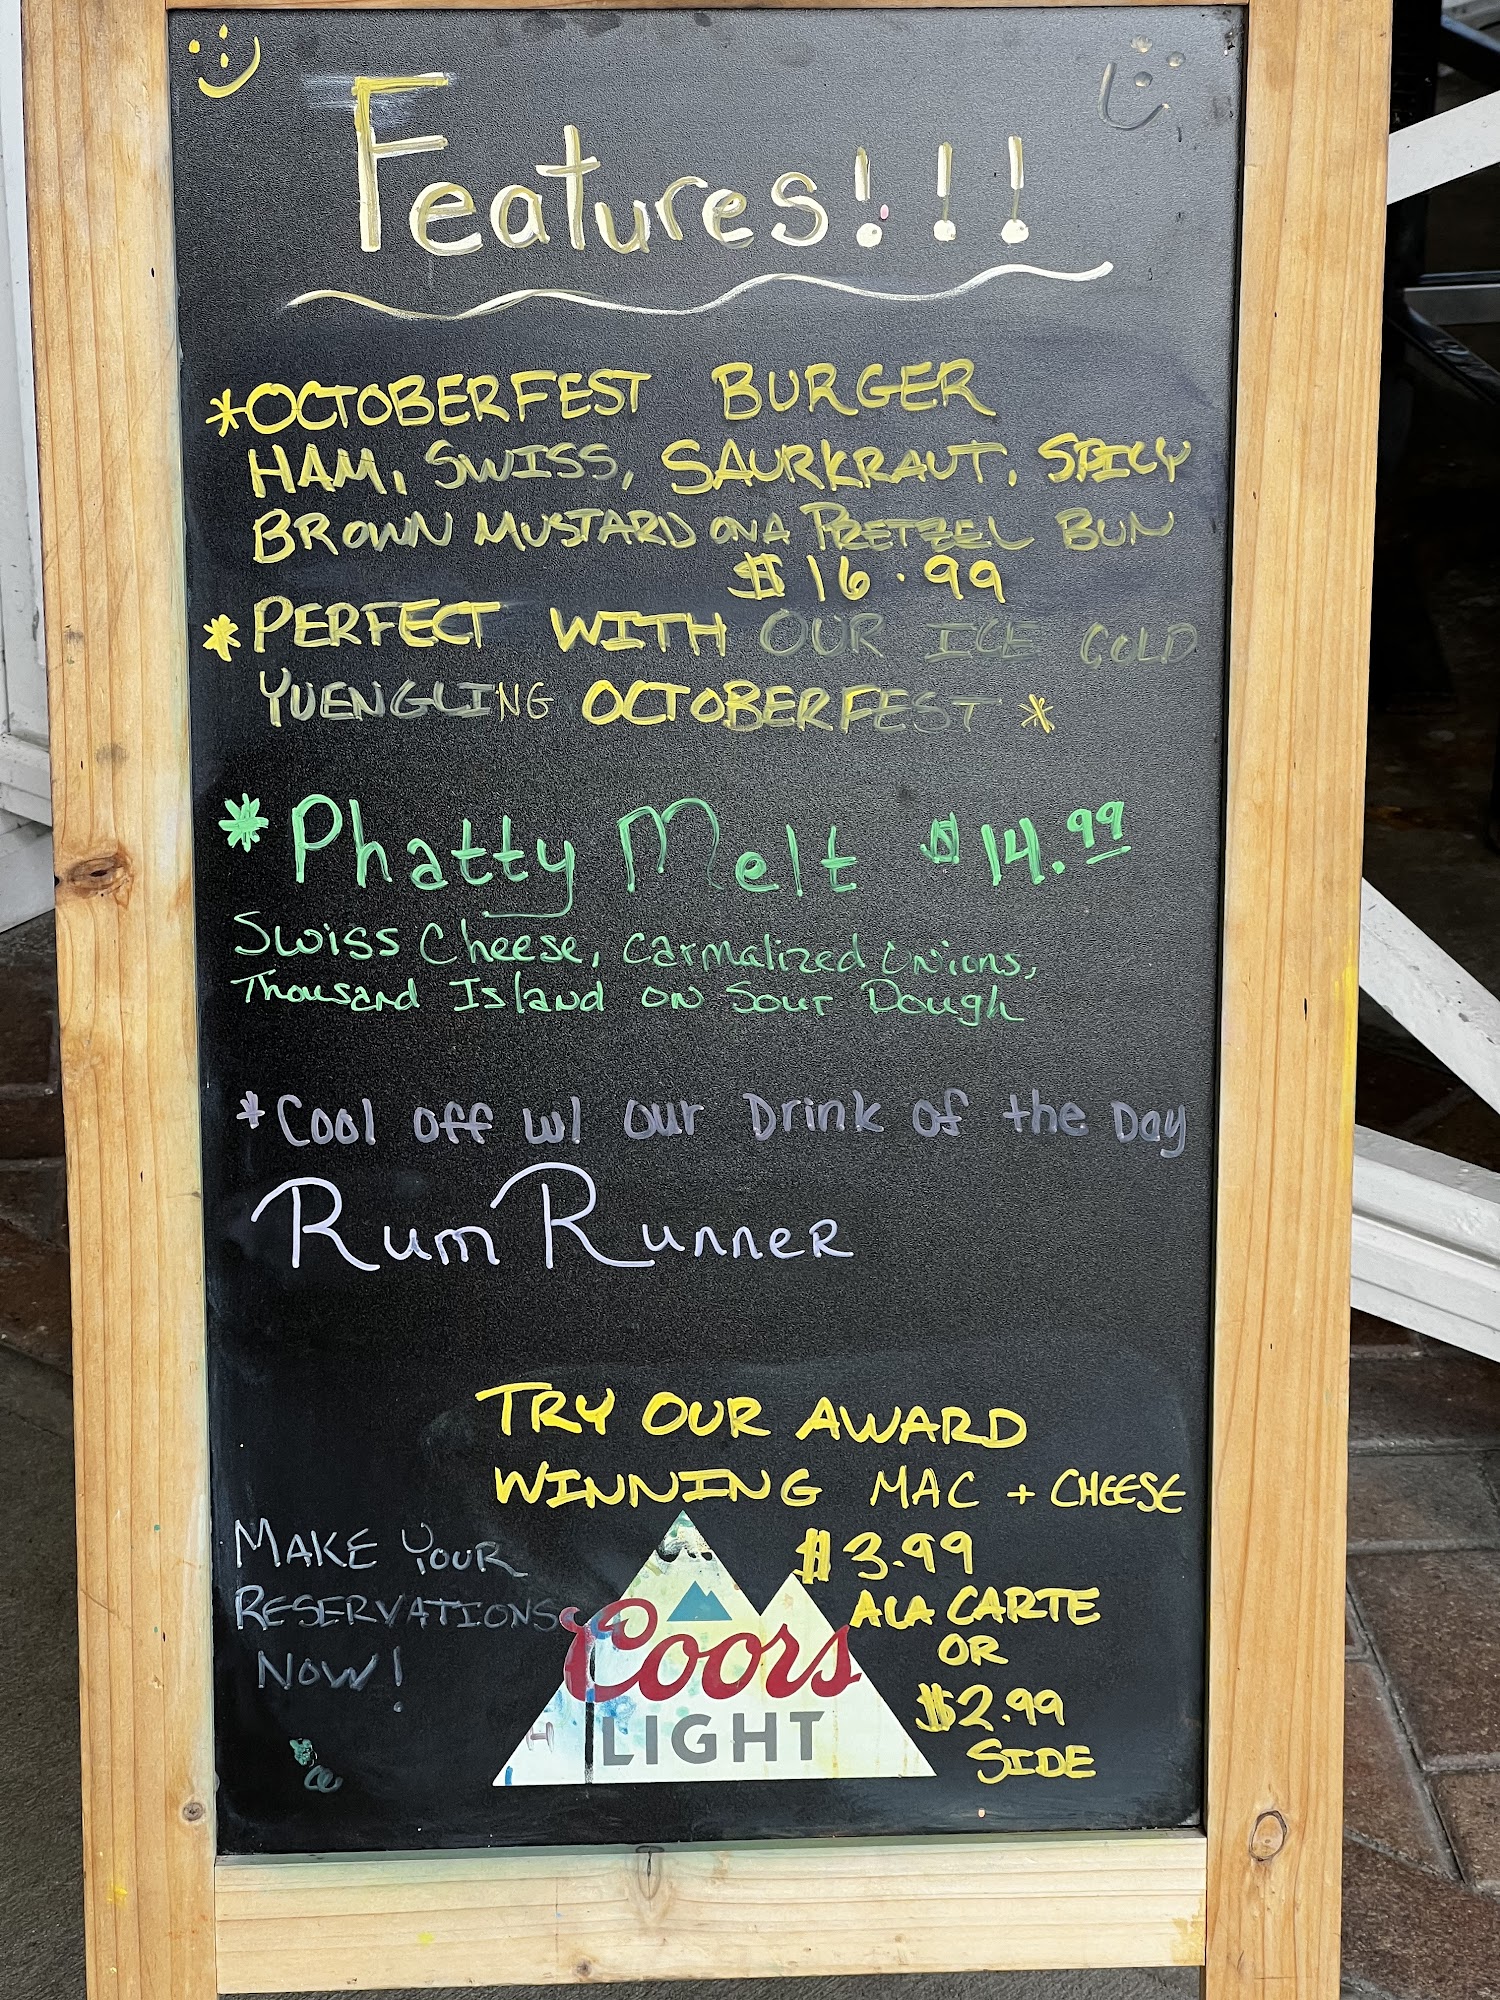 Features!!!
*OCTOBERFEST BURGER
HAM, SWISS, SAURKRAUT, SPICY
BROWN MUSTARD ON A PRETZEL BUN
$16.99
*PERFECT WITH OUR ICE COLD
YUENGLING OCTOBERFEST *
*Phatty Melt $14.99
Swiss Cheese, Carmalized Onions,
Thousand Island on Sour Dough
*Cool off w/ our Drink of the Day
Rum Runner
TRY OUR AWARD
WINNING MAC + CHEESE
$3.99
ALA CARTE
OR
$2.99
SIDE
MAKE YOUR
RESERVATIONS
NOW!
Coors
LIGHT